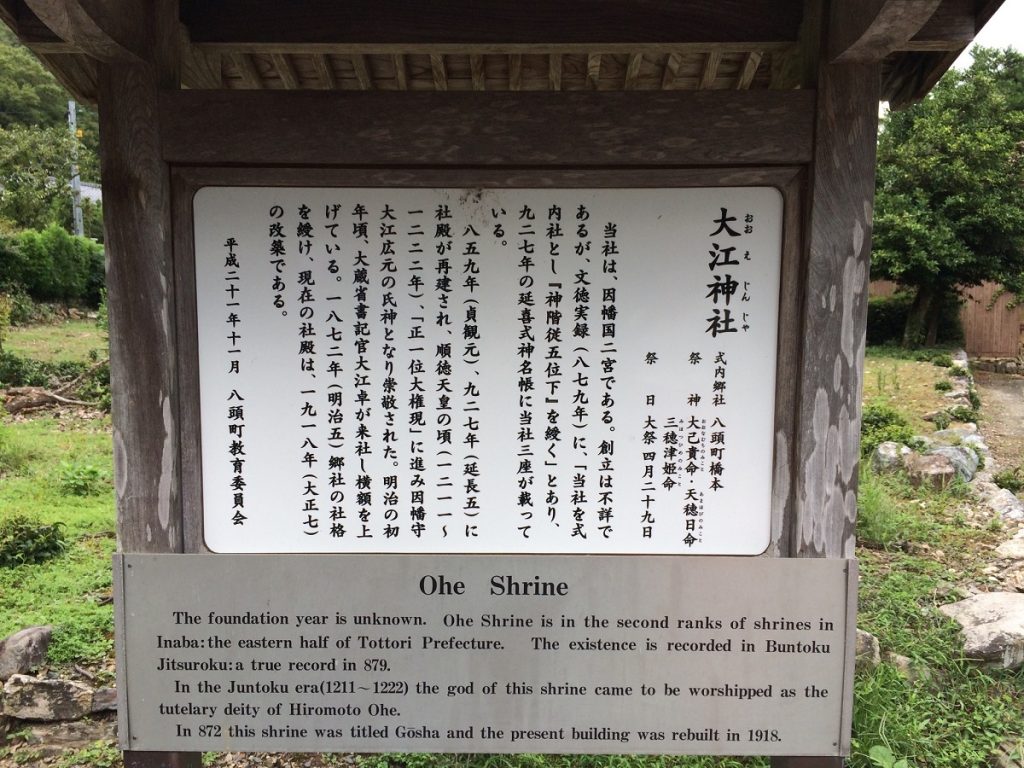 大江神社
おおえじんじゃ
式内郷社 八頭町橋本
祭 神 大己貴命・天穂日命
おおなむちのみこと あまほびのみこと
三穂津姫命
みほつひめのみこと
祭 日 大祭四月二十九日
当社は、因幡国二宮である。創立は不詳で
あるが、文徳実録(八七九年)に、「当社を式
内社とし『神階従五位下』を綬く」とあり、
九二七年の延喜式神名帳に当社三座が載って
いる。
八五九年(貞観元)、九二七年(延長五)に
社殿が再建され、順徳天皇の頃(一二一一～
一二二二年)、「正一位大権現」に進み因幡守
大江広元の氏神となり崇敬された。明治の初
年頃、大蔵省書記官大江卓が来社し横額を上
げている。一八七二年(明治五)郷社の社格
を綬け、現在の社殿は、一九一八年(大正七)
の改築である。
平成二十一年十一月 八頭町教育委員会
Ohe Shrine
The foundation year is unknown. Ohe Shrine is in the second ranks of shrines in
Inaba:the eastern half of Tottori Prefecture. The existence is recorded in Buntoku
Jitsuroku:a true record in 879.
In the Juntoku era(1211～1222) the god of this shrine came to be worshipped as the
tutelary deity of Hiromoto Ohe.
In 872 this shrine was titled Gōsha and the present building was rebuilt in 1918.